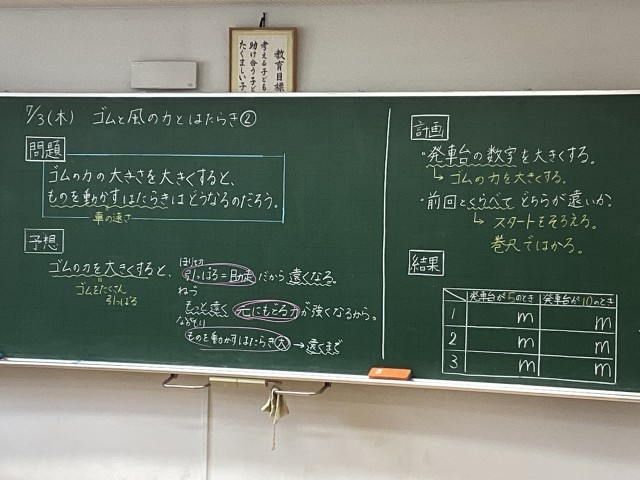 教育目標
考える子ども
助け合う子ども
たくましい子
7/3(木) ゴムと風の力とはたらき②
問題
ゴムの力の大きさを大きくすると、
ものを動かすはたらきはどうなるのだろう。
車の速さ
予想
ゴムの力を大きくすると、
ゴムをたくさん
引っぱる
引っぱる=助走だから遠くなる。
もっと遠く 元にもどる力が強くなるから。
ものを動かすはたらき大→遠くまで
計画
・発車台の数字を大きくする。
↳ゴムの力を大きくする。
・前回とくらべてどちらが遠いか。
↳スタートをそろえる。
巻尺ではかる。
結果
発車台が5のとき 発車台が10のとき
1 m m
2 m m
3 m m